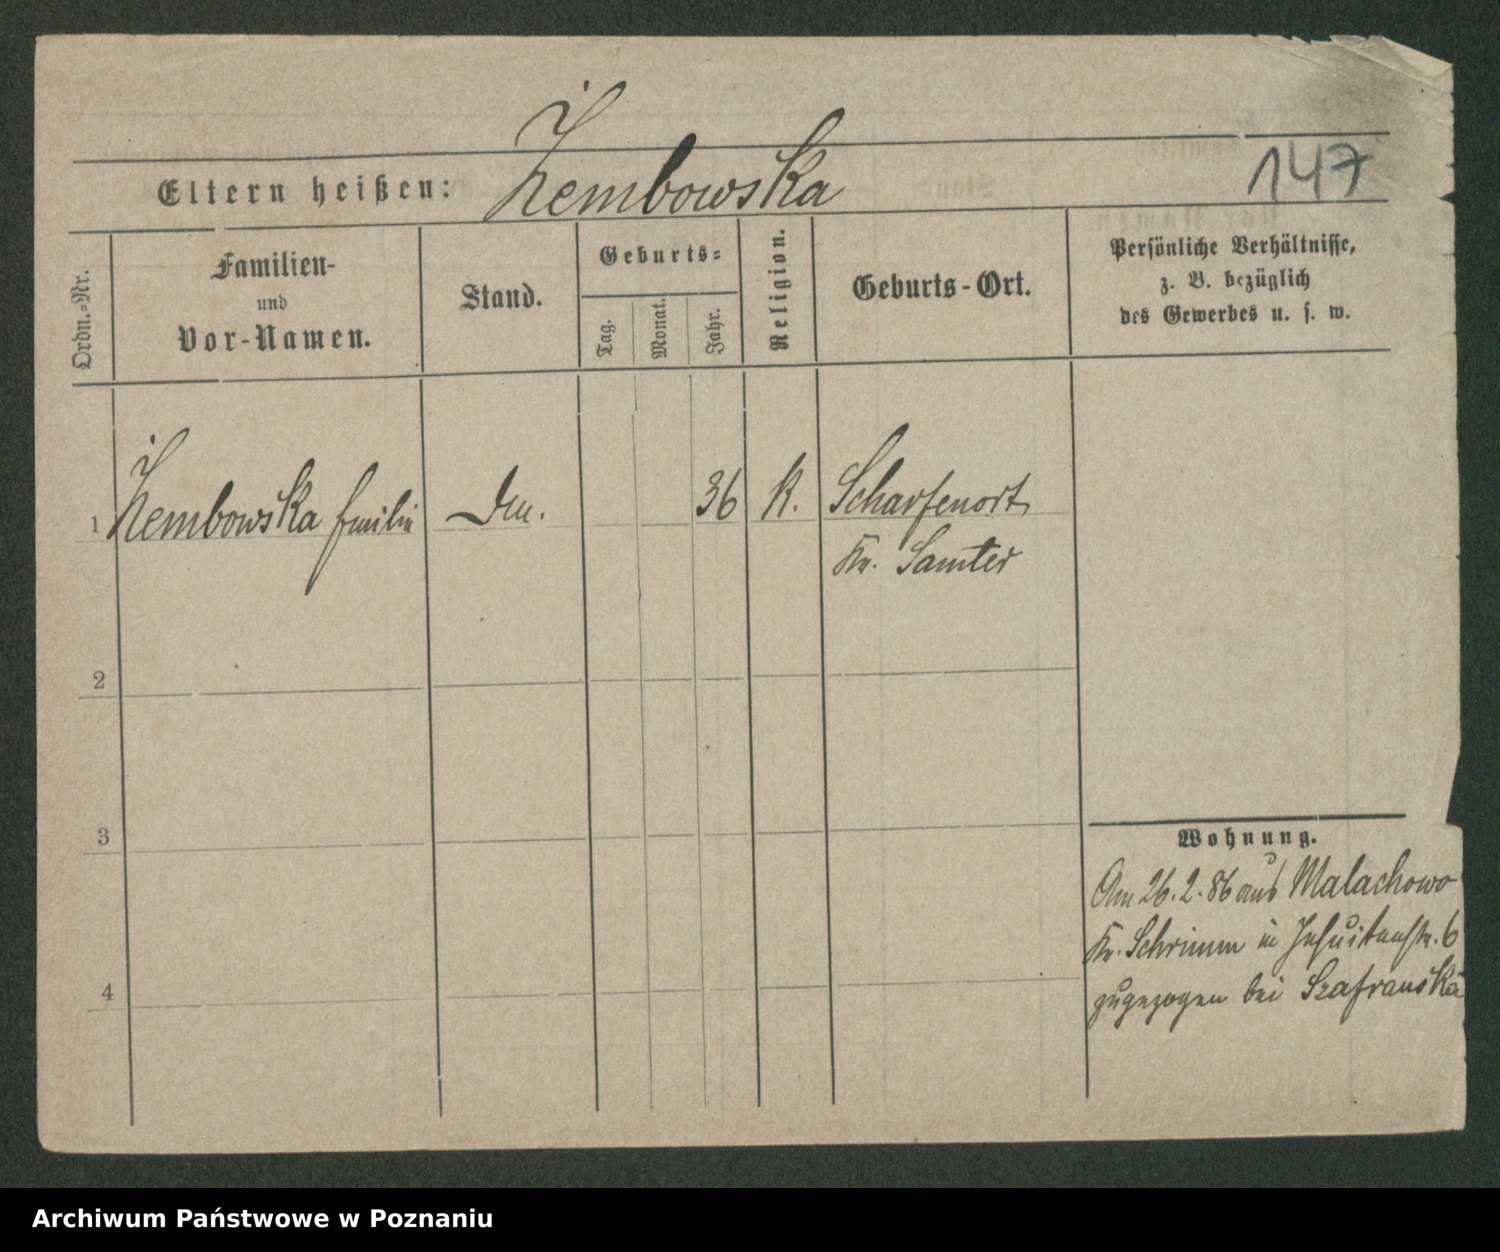 147
Eltern heißen: Żembowska
Ordn.-Nr.
Familien-
und
Vor-Namen.
Stand.
Geburts-
Tag.
Monat.
Jahr.
Religion.
Geburts-Ort.
Persönliche Verhältnisse,
z. B. bezüglich
des Gewerbes u. s. w.
1 Żembowska Emilie 36 K. Scharfenort
Kr. Samter
2
3
4
Wohnung.
Am 26.2.86 aus Malachowo
Kr. Schrimm in Jesuitenstr. 6
zugezogen bei Szafranska
Archiwum Państwowe w Poznaniu